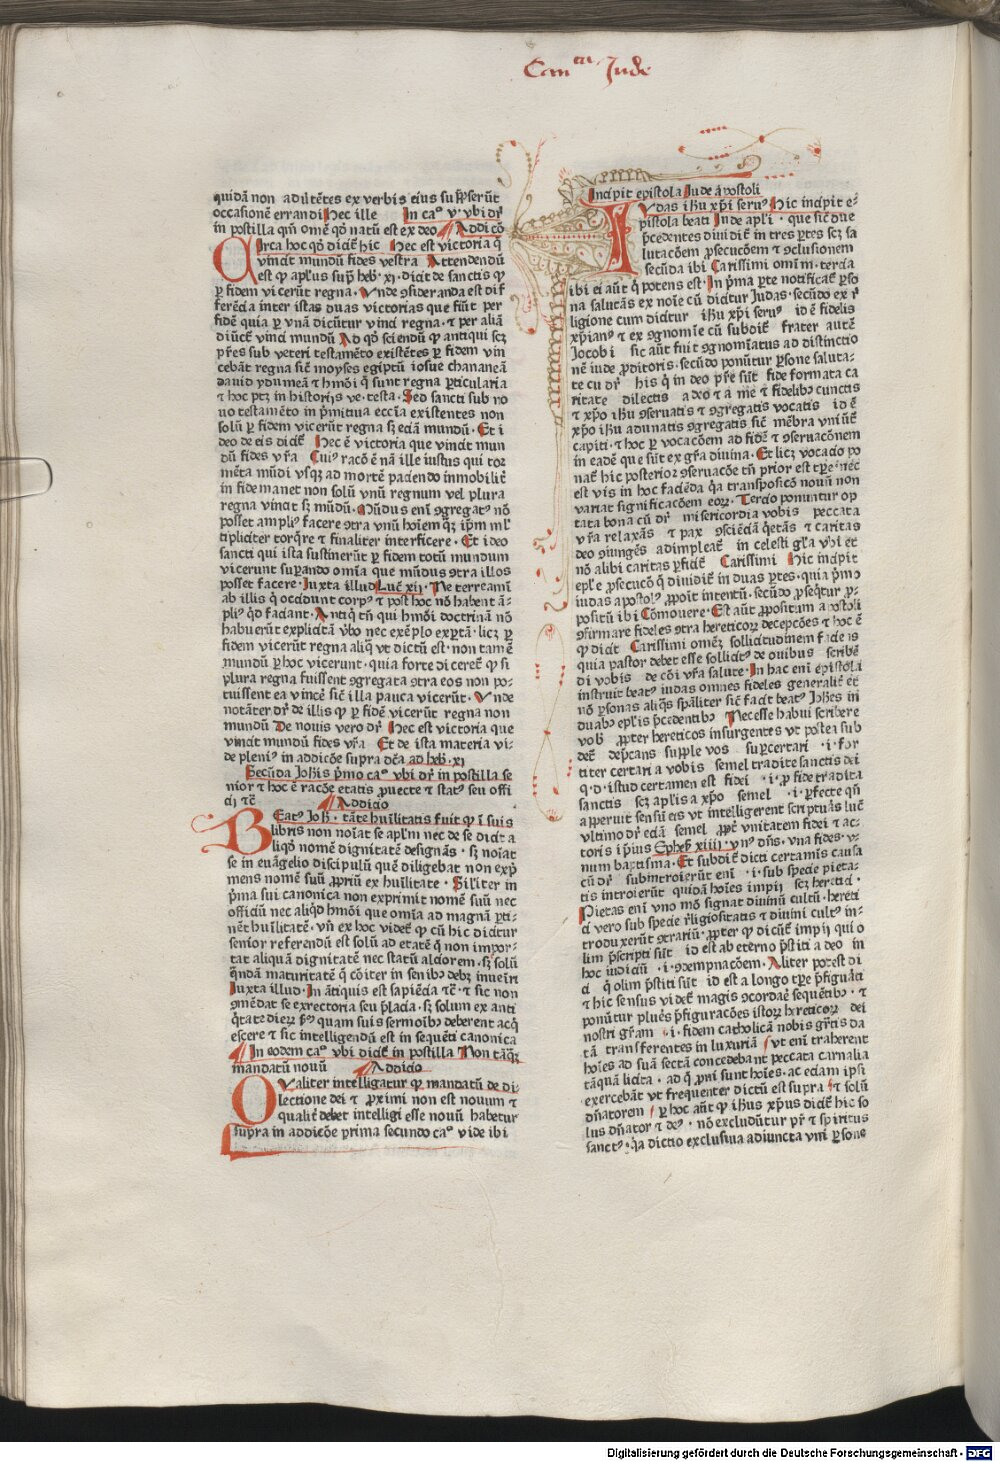 Can^ca Jude
quidā non aduertētes ex verbis eius sūpserūt
occasionē errandi Hec ille In caº vº vbi dr̄
in postilla qm̄ omē qđ natū est ex deo Addicō
CIrca hoc qđ dicit̄ hic Hec est victoria q̄
vincit mundū fides vestra Attendendū
est ꝙ aplus sup̄ heb̄ xi dicit de sanctis ꝙ
ꝑ fidem vicerūt regna Vnde ꝯsideranda est dif
ferēcia inter istas duas victorias que fiūt per
fidē quia ꝑ vnā dicūtur vinci regna ⁊ per aliā
vinci mundū Ad qđ sciendū ꝙ antiqui scꝫ
pr̄es sub veteri testamēto existētes ꝑ fidem vin
cebāt regna sic̄ moyses egiptū iosue chananeā
dauid ydumeā ⁊ hmōi q̄ sunt regna ꝑticularia
⁊ hoc ptꝫ in historijs ve testa Sed sancti sub no
uo testamēto in p̄mitiua eccl̄ia existentes non
solū ꝑ fidem vicerūt regna sꝫ eciā mundū Et i
deo de eis dicit̄ Hec ē victoria que vincit mun
dū fides vr̄a Cuiꝰ racō ē nā ille iustus qui tor
mēta mūdi vsqꝫ ad mortē paciendo inmobilit̄
in fide manet non solū vnū regnum vel plura
regna vincit sꝫ mūdū Mūdus eni ꝯgregatꝰ nō
posset ampliꝰ facere ꝯtra vnū hoīem qꝫ ip̄m ml̄
tipliciter torq̄re ⁊ finaliter interficere Et ideo
sancti qui ista sustinerūt ꝑ fidem totū mundum
vicerunt suꝑando omīa que mūdus ꝯtra illos
posset facere Iuxta illud Luc̄ xij Ne terreami
ab illis q̄ occidunt corpꝰ ⁊ post hoc nō habent ā
pliꝰ qđ faciant Antiq̄ tn̄ qui hmōi doctrinā nō
habuerūt explicitā v̄bo nec exēplo exꝑtā licꝫ ꝑ
fidem vicerūt regna aliq̄ vt dictū est non tamē
mundū ꝑ hoc vicerunt quia forte diceret̄ ꝙ si
plura regna fuissent ꝯgregata ꝯtra eos non po
tuissent ea vincē sic̄ illa pauca vicerūt Vnde
notāter dr̄ de illis ꝙ ꝑ fidē vicerūt regna non
mundū De nouis vero dr̄ Hec est victoria que
vincit mundū fides vr̄a Et de ista materia vi
de pleniꝰ in addicōe supra dc̄a ad heb̄ xi
Secūda Ioh̄is p̄mo caº vbi dr̄ in postilla se
nior ⁊ hoc ē racōe etatis ꝓuecte ⁊ statꝰ seu offi
cij ⁊c̄ Addicio
BEatꝰ Ioh̄ tāte huīlitatis fuit ꝙ ī suis
libris non noīat se apl̄m nec de se dicit a
liqđ nomē dignitatē designās sꝫ noīat
se in euāgelio discipulū quē diligebat non exp̄
mens nomē suū ꝓpriū ex huīlitate Sil̄iter in
p̄ma sui canonica non exprimit nomē suū nec
officiū nec aliqđ hmōi que omīa ad magnā ꝑti
nēt huīlitatē vn̄ ex hoc videt̄ ꝙ cū hic dicitur
senior referendū est solū ad etatē q̄ non impor
tat aliquā dignitatē nec statū alciorem sꝫ solū
q̄ndā maturitatē q̄ cōiter in senibꝰ debꝫ inueīri
Iuxta illud In ātiquis est sapiēcia ⁊c̄ ⁊ sic non
ꝯmēdat se ex rectoria seu p̄lacia sꝫ solum ex anti
quam suis sermoībꝰ deberent acq̄
escere ⁊ sic intelligendū est in sequēti canonica
In eodem caº vbi dicit̄ in postilla Non tāqꝫ
mandatū nouū Addicio
QValiter intelligatur ꝙ mandatū de di
lectione dei ⁊ ꝓximi non est nouum ⁊
qualit̄ debet intelligi esse nouū habetur
supra in addicōe prima secundo caº vide ibi
Incipit epistola Iude apostoli
IVdas ih̄u xp̄i seruꝰ Hic incipit e
pistola beati Iude apl̄i que sic̄ due
p̄cedentes diuidit̄ in tres ꝑtes scꝫ sa
lutacōem ꝓsecucōem ⁊ ꝯclusionem
secūda ibi Carissimi omēm tercia
ibi ei aūt q̄ potens est In p̄ma ꝑte notificat̄ ꝑso
na salutās ex noīe cū dicitur Iudas secūdo ex r̄
ligione cum dicitur ih̄u xp̄i seruꝰ id ē fidelis
xp̄ianꝰ ⁊ ex ꝯgnomīe cū subdit̄ frater autē
Iacobi sic aūt fuit ꝯgnomīatus ad distinctio
nē iude ꝓditoris secūdo ponūtur ꝑsone saluta
te cū dr̄ his q̄ in deo pr̄e sūt fide formata ca
ritate dilectis a deo ⁊ a me ⁊ fidelibꝰ cunctis
⁊ xp̄o ih̄u ꝯseruatis ⁊ ꝯgregatis vocatis id ē
xp̄o ih̄u adunatis ꝯgregatis sic̄ mēbra vniūt̄
capiti ⁊ hoc ꝑ vocacōem ad fidē ⁊ ꝯseruacōnem
in eadē que sūt ex gr̄a diuina Et licꝫ vocacio po
nat̄ hic posterior ꝯseruacōe tn̄ prior est tꝑe nec
est vis in hoc faciēda q̄a transposicō nouū non
variat significacōem eoꝝ Tercio ponuntur op
tata bona cū dr̄ misericordia vobis peccata
vr̄a relaxās ⁊ pax ꝯsciēciā q̄etās ⁊ caritas
deo ꝯiungēs adimpleat̄ in celesti gl̄ia vbi et
nō alibi caritas ꝑficit̄ Carissimi Hic incipit
epl̄e ꝓsecucō q̄ diuidit̄ in duas ꝑtes quia p̄mo
iudas apostolꝰ ꝓpōit intentū secūdo ꝓseq̄tur ꝓ
positū ibi Cōmouere Est aūt ꝓpositum apostoli
ꝯfirmare fideles ꝯtra hereticoꝝ decepcōes ⁊ hoc ē
ꝙ dicit Carissimi omēꝫ sollicitudinem faciēs
quia pastor debet esse sollicitꝰ de ouibus scribē
di vobis de cōi vr̄a salute In hac eni epistola
instruit beatꝰ iudas omnes fideles generalit̄ et
nō ꝑsonas aliq̄s sp̄aliter sic̄ facit beatꝰ Ioh̄es in
duabꝰ epl̄is p̄cedentibꝰ Necesse habui scribere
vob̄ ꝓpter hereticos insurgentes vt postea sub
det̄ dep̄cans supple vos suꝑcertari i for
titer certari a vobis semel tradite sanctis dei
q d istud certamen est fidei i ꝓ fide tradita
sanctis scꝫ apl̄is a xp̄o semel i ꝑfecte qn̄
aperuit sensū eis vt intelligerent scripturas luc̄
vltimo dr̄ eciā semel ꝓpt̄ vnitatem fidei ⁊ ac
toris ipsius Ephes̄ iiij vnꝰ dn̄s vna fides v
num baptisma Et subdit̄ dicti certamīs causa
cū dr̄ subintroierūt eni i sub specie pieta
tis introierūt quidā hoīes impij scꝫ heretici
Pietas eni vno mō signat diuinū cultū hereti
ci vero sub specie r̄ligiositatis ⁊ diuini cultꝰ in
troduxerūt ꝯtrariū ꝓpter ꝙ dicūt̄ impij qui o
lim p̄scripti sūt id est ab eterno p̄sciti a deo in
hoc iudiciū i ꝯdempnacōem Aliter potest di
ci q̄ olim p̄sciti sūt id est a longo tꝑe p̄figurati
⁊ hic sensus videt̄ magis ꝯcordare seq̄ntibꝰ ⁊
ponūtur plures p̄figuracōes istoꝝ hereticoꝝ dei
nostri gr̄am i fidem catholicā nobis gr̄tis da
tā transferentes in luxuriā vt eni traherent
hoīes ad suā sectā concedebant peccata carnalia
tāquā licita ad q̄ ꝓni sunt hoīes ac eciam ipsi
exercebāt vt frequenter dictū est supra ⁊ solū
dn̄atorem ꝑ hoc aūt ꝙ ih̄us xp̄us dicit̄ hic so
lus dn̄ator ⁊ deꝰ nō excludūtur pr̄ ⁊ spiritus
sanctꝰ q̄a dictio exclusiua adiuncta vni ꝑsone
Digitalisierung gefördert durch die Deutsche Forschungsgemeinschaft - DFG